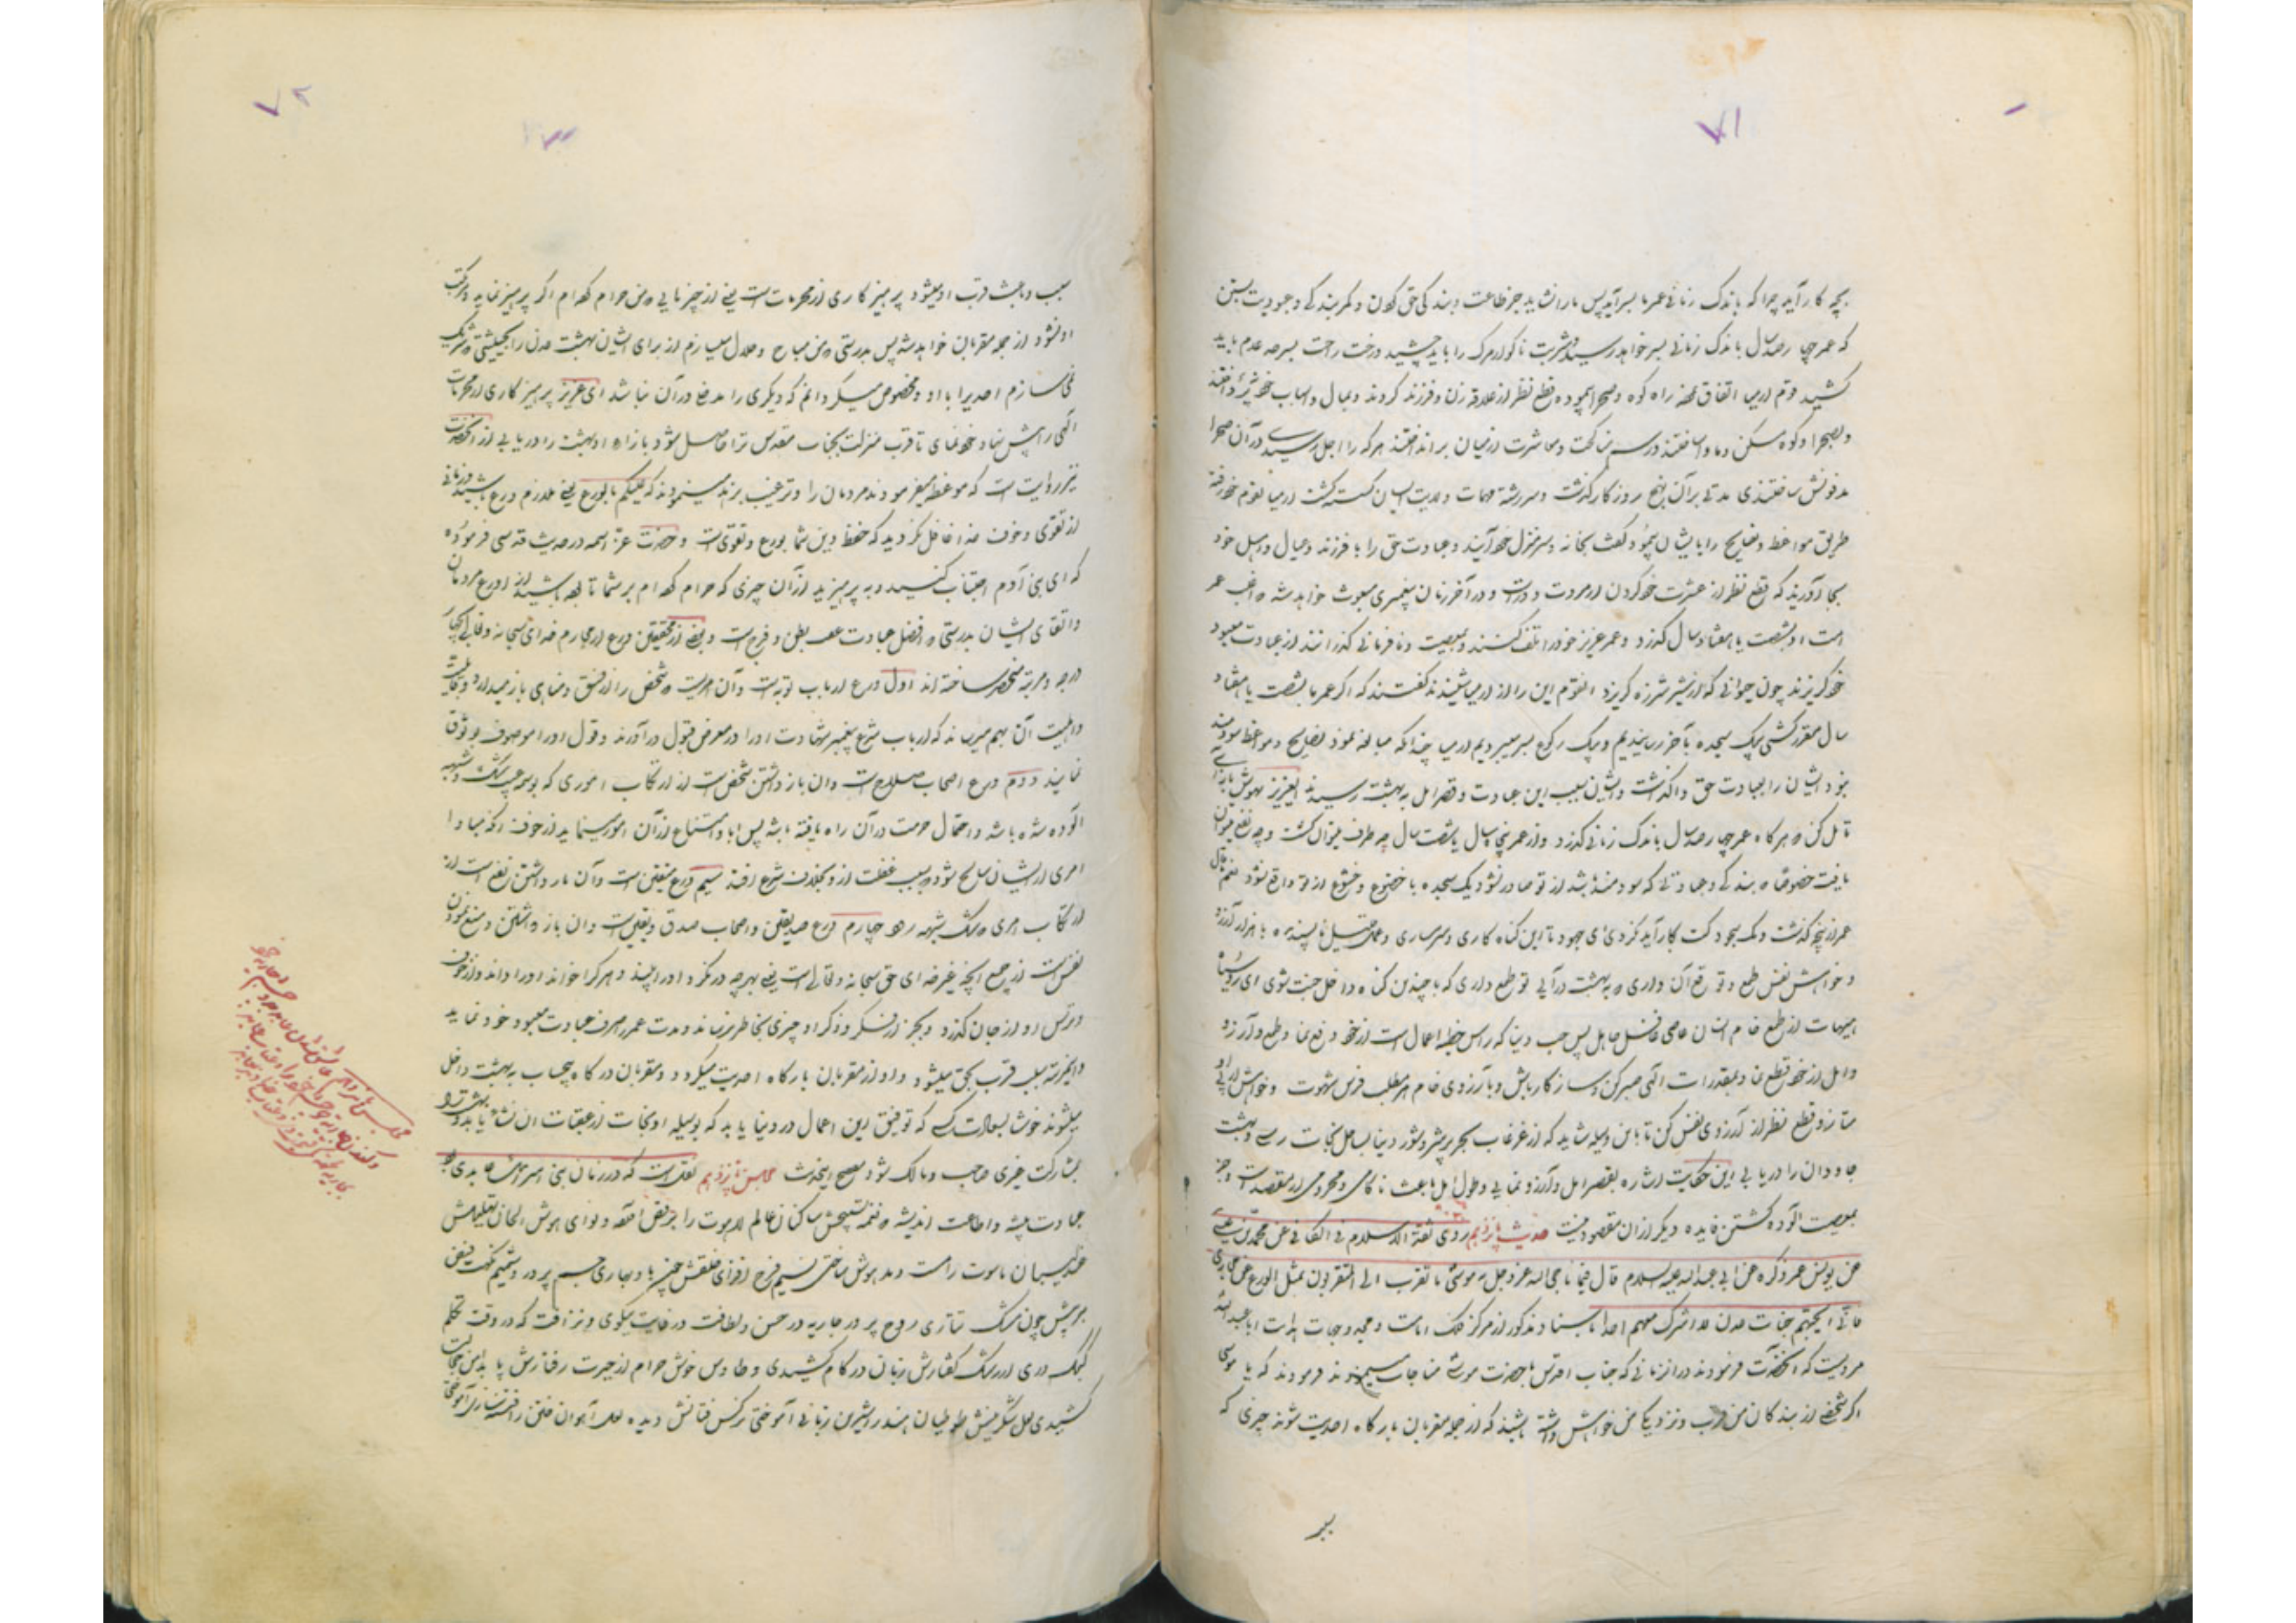 ۷۱
بچه کار آید چرا که باندک زمانی عمر ما بسر آید پس ما را نشاید جز طاعت و بندگی حق کردن و کمر بندگی و عبودیت بستن
که عمر چهارصد سال باندک زمانی بسر خواهد رسید و شربت ناگوار مرک را باید چشید و رخت رحلت بسر حد عدم باید
کشید قوم ارمیا اتفاق نموده راه کوه و صحرا پیموده قطع نظر از علاقه زن و فرزند کردند و بمال و اسباب خود نپرداختند
و بصحرا و کوه مسکن و ماوا ساختند و رسم مناکحت و معاشرت از میان برانداختند هر که را اجل رسیدی در آن صحرا
مدفونش ساختندی مدتی بر آن نهج روزگار گذشت و سررشته مهمات ولایت ایشان گسسته گشت ارمیا بقوم خود رفته
طریق مواعظ و نصایح را بایشان پیمود و گفت بخانه و سرمنزل خود آیند و عبادت حق را با فرزند و عیال و اهل خود
بجا آورند که قطع نظر از عشرت خود کردن از مروت دور است و در آخر زمان پیغمبری مبعوث خواهد شد که اغلب عمر
امت او بشصت یا هفتاد سال گذرد و عمر عزیز خود را تلف کنند و بمعصیت و نافرمانی گذرانند از عبادت معبود
خود گریزند چون حیوانی که از شیر شرزه گریزد القوم این را از ارمیا شنیدند گفتند که اگر عمر ما بشصت یا هفتاد
سال مقرر گشتی بیک سجده بآخر رسانیدیم و بیک رکوع بسر میبردیم ارمیا چندانکه مبالغه نمود نصایح و مواعظ سودمند
نبود ایشان را بعبادت حق واگذاشت و ایشان بسبب این عبادت و قصر امل به بهشت رسیدند ایعزیز بهوش بازآی
تامل کن که هرگاه عمر چهارصد سال باندک زمانی گذرد و از عمر پنجاه سال یا شصت سال چه طرف میتوان بست و چه نفع میتوان
یافت خصوصا که بندگی و عبادتی که سودمند باشد از تو صادر نشود یک سجده با خضوع و خشوع از تو واقع نشود
عمر از پنجه گذشت و یک سجودت بکار آید نکردی ای جهود تا این گناه کاری و شرمساری و عمل قلیل ناپسندیده با هزار آرزو
و خواهش نفس طمع و توقع آن داری که به بهشت درآیی تو طمع داری که با چندین گناه داخل جنت شوی ای روسیاه
هیهات از طمع خام انسان عاصی غافل جاهل پس حب دنیا که راس خطیئه اعمال است از خود دفع نما و طمع و آرزو
و امل از خود قطع نما و بمقدرات الهی صبر کن و ساز کار باش و بآرزوی خام هر مطلب فرس شهوت و خواهش
متاز و قطع نظر از آرزوی نفس کن تا باین وسیله شاید که از غرقاب بحر پر شر و شور دنیا بساحل نجات رسی و بهشت
جاودان را دریابی این حکایت اشاره بقصر امل و آرزو نمایی و طول امل باعث ناکامی و محرومی از مقصد است و جز
بمعصیت آلوده گشتن فایده دیگر از آن مقصود نیست حدیث پانزدهم روی ثقة الاسلام فی الکافی عن محمد بن یحیی
عن یونس عمن ذکره عن ابی عبدالله علیه السلام قال فیما ناجی الله عز و جل به موسی ما تقرب الی المتقربون بمثل الورع عن محارمی
فانی ابیحهم جنات عدن لا اشرک معهم احدا بسند مذکور از مرکز فلک امامت و محیط درجات هدایت اباعبدالله
مرویست که آنحضرت فرمودند در آنزمانی که جناب اقدس با حضرت موسی مناجات مینمودند فرمودند که یا موسی
اگر شخصی از بندگان من قرب و نزدیکی من خواهش داشته باشند که از جمله مقربان بارگاه احدیت شوند چیزی که
۷۲
سبب و باعث قرب او میشود پرهیزکاری از محرماتست یعنی از چیزهایی که من حرام کرده ام اگر پرهیز نماید و مرتکب
او نشود از جمله مقربان خواهد شد پس بدرستی که من مباح و حلال میسازم از برای ایشان بهشت عدن را بحیثیتی که شریک
نمی سازم احدی را با او و مخصوص میگردانم که دیگری را مدخل در آن نباشد ای عزیز پرهیزکاری از محرمات
الهی را پیش نهاد خود نمای تا قرب منزلت بجناب مقدس ترا حاصل شود و بازاء او بهشت را دریابی از آنحضرت
نیز روایت است که موعظه میفرمودند مردمان را و ترغیب بزهد مینمودند که علیکم بالورع یعنی ملازم ورع باشید و زمانی
از تقوی و خوف خدا غافل نگردید که حفظ دین شما بورع و تقوی است و حضرت عز اسمه در حدیث قدسی فرموده
که ای بنی آدم اجتناب کنید و به پرهیزید از آن چیزی که حرام کرده ام بر شما تا بوده باشید از اورع مردمان
و اتقای ایشان بدرستی که افضل عبادت عفت بطن و فرج است و بعضی از محققین ورع از محارم خدای سبحانه و تعالی بچهار
درجه و مرتبه منحصر ساخته اند اول ورع ارباب توبه است و آن مرتبه ایست که شخص را از فسق و مناهی باز میدارد
و اهلیت آن بهم میرساند که ارباب شرع پیغمبر شهادت او را در معرض قبول درآورند و قول او را موصوف بوثوق
نمایند دوم ورع اصحاب صلاح است و آن باز داشتن شخص است از ارتکاب اموری که بوسوسه شک و شبهه
آلوده شده باشد و احتمال حرمت در آن راه یافته باشد پس ابا و امتناع از آن امور مینماید از خوف آنکه مبادا
امری از ایشان سانح شود که بسبب غفلت از او بخلاف شرع افتد سیم ورع متقین است و آن باز داشتن نفس است از
ارتکاب امری که شک و شبهه چهارم ورع صدیقین و اصحاب صدق و یقین است و آن باز داشتن و منع نمودن
نفس است از جمیع آنچه غیر خدای حق سبحانه و تعالی است یعنی بهر چه در نگرد او را بیند و هر که را خواند او را داند و از خوف
و ترس او از جان گذرد و بجز از فکر و ذکر او چیزی بخاطر نرساند و مدت عمر را صرف عبادت معبود خود نماید
و اینمرتبه سبب قرب بحق میشود و او از مقربان بارگاه احدیت میگردد و مقربان درگاه بیحساب به بهشت داخل
میشوند خوشا بسعادت کسی که توفیق این اعمال در دنیا یابد که بوسیله او نجات از عقبات آن نشاه یابد
بمشارکت غیری صاحب و مالک شود مصحح این حدیث مجلس پانزدهم نقل است که در زمان بنی اسرائیل عابدی بود
عبادت پیشه و اطاعت اندیشه که نغمه تسبیحش ساکنان عالم لاهوت را برقص آورده و نوای هوش الحان تهلیلش
عندلیبان ناسوت را مست و مدهوش ساختی نسیم فرح افزای خلقش
مویش چون مشک تتاری روح پرور جاریه در حسن و لطافت در غایت نیکوی و نزاکت که در وقت تکلم
کبک دری از رشک گفتارش زبان در کام کشیدی و طاوس خوش خرام از حیرت رفتارش پا بدامن خجالت
کشیدی لعل شکرینش طوطیان هند را شیرین زبانی آموختی نرگس فتانش دیده آهوان ختن را فتنه سازی آموختی
مجلس پانزدهم